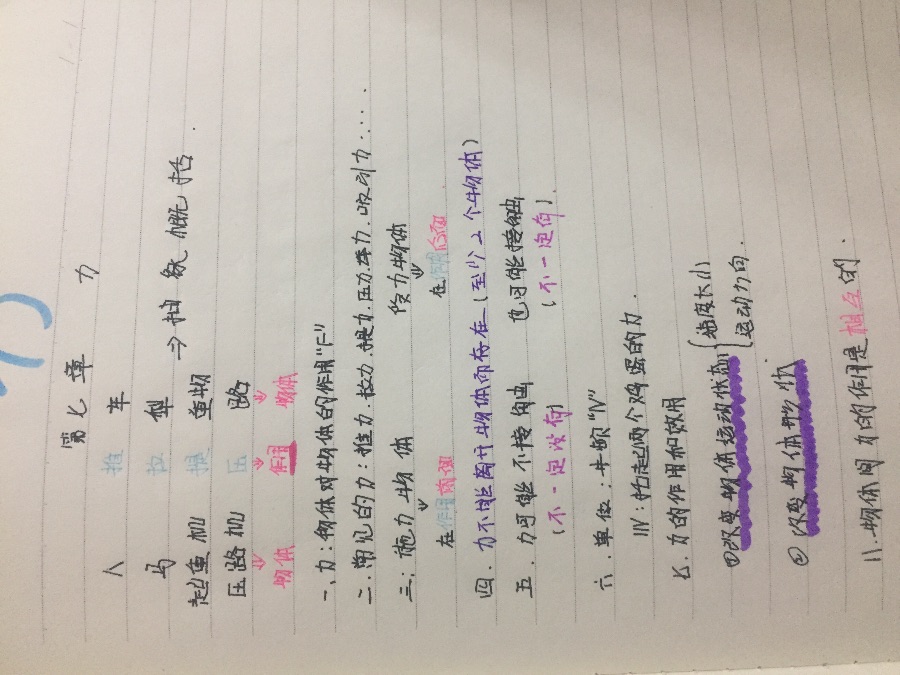 第七章 力
人 推 车
马 拉 犁 → 抽象概括.
起重机 提 重物
压路机 压 路
物体 作用 物体
一、力:物体对物体的作用"F"
二.常见的力:推力.拉力.提力.压力.牵力.吸引力.....
三:施力物体 受力物体
在作用前面 在作用后面
四.力不能离开物体而存在(至少2个物体)
五.力可能不接触 也可能接触
(不一定没有) (不一定有).
六.单位:牛顿"N"
1N:托起两个鸡蛋的力.
七.力的作用和效用
①改变物体运动状态 速度大小
运动方向.
②改变物体形状.
八.物体间力的作用是相互的.